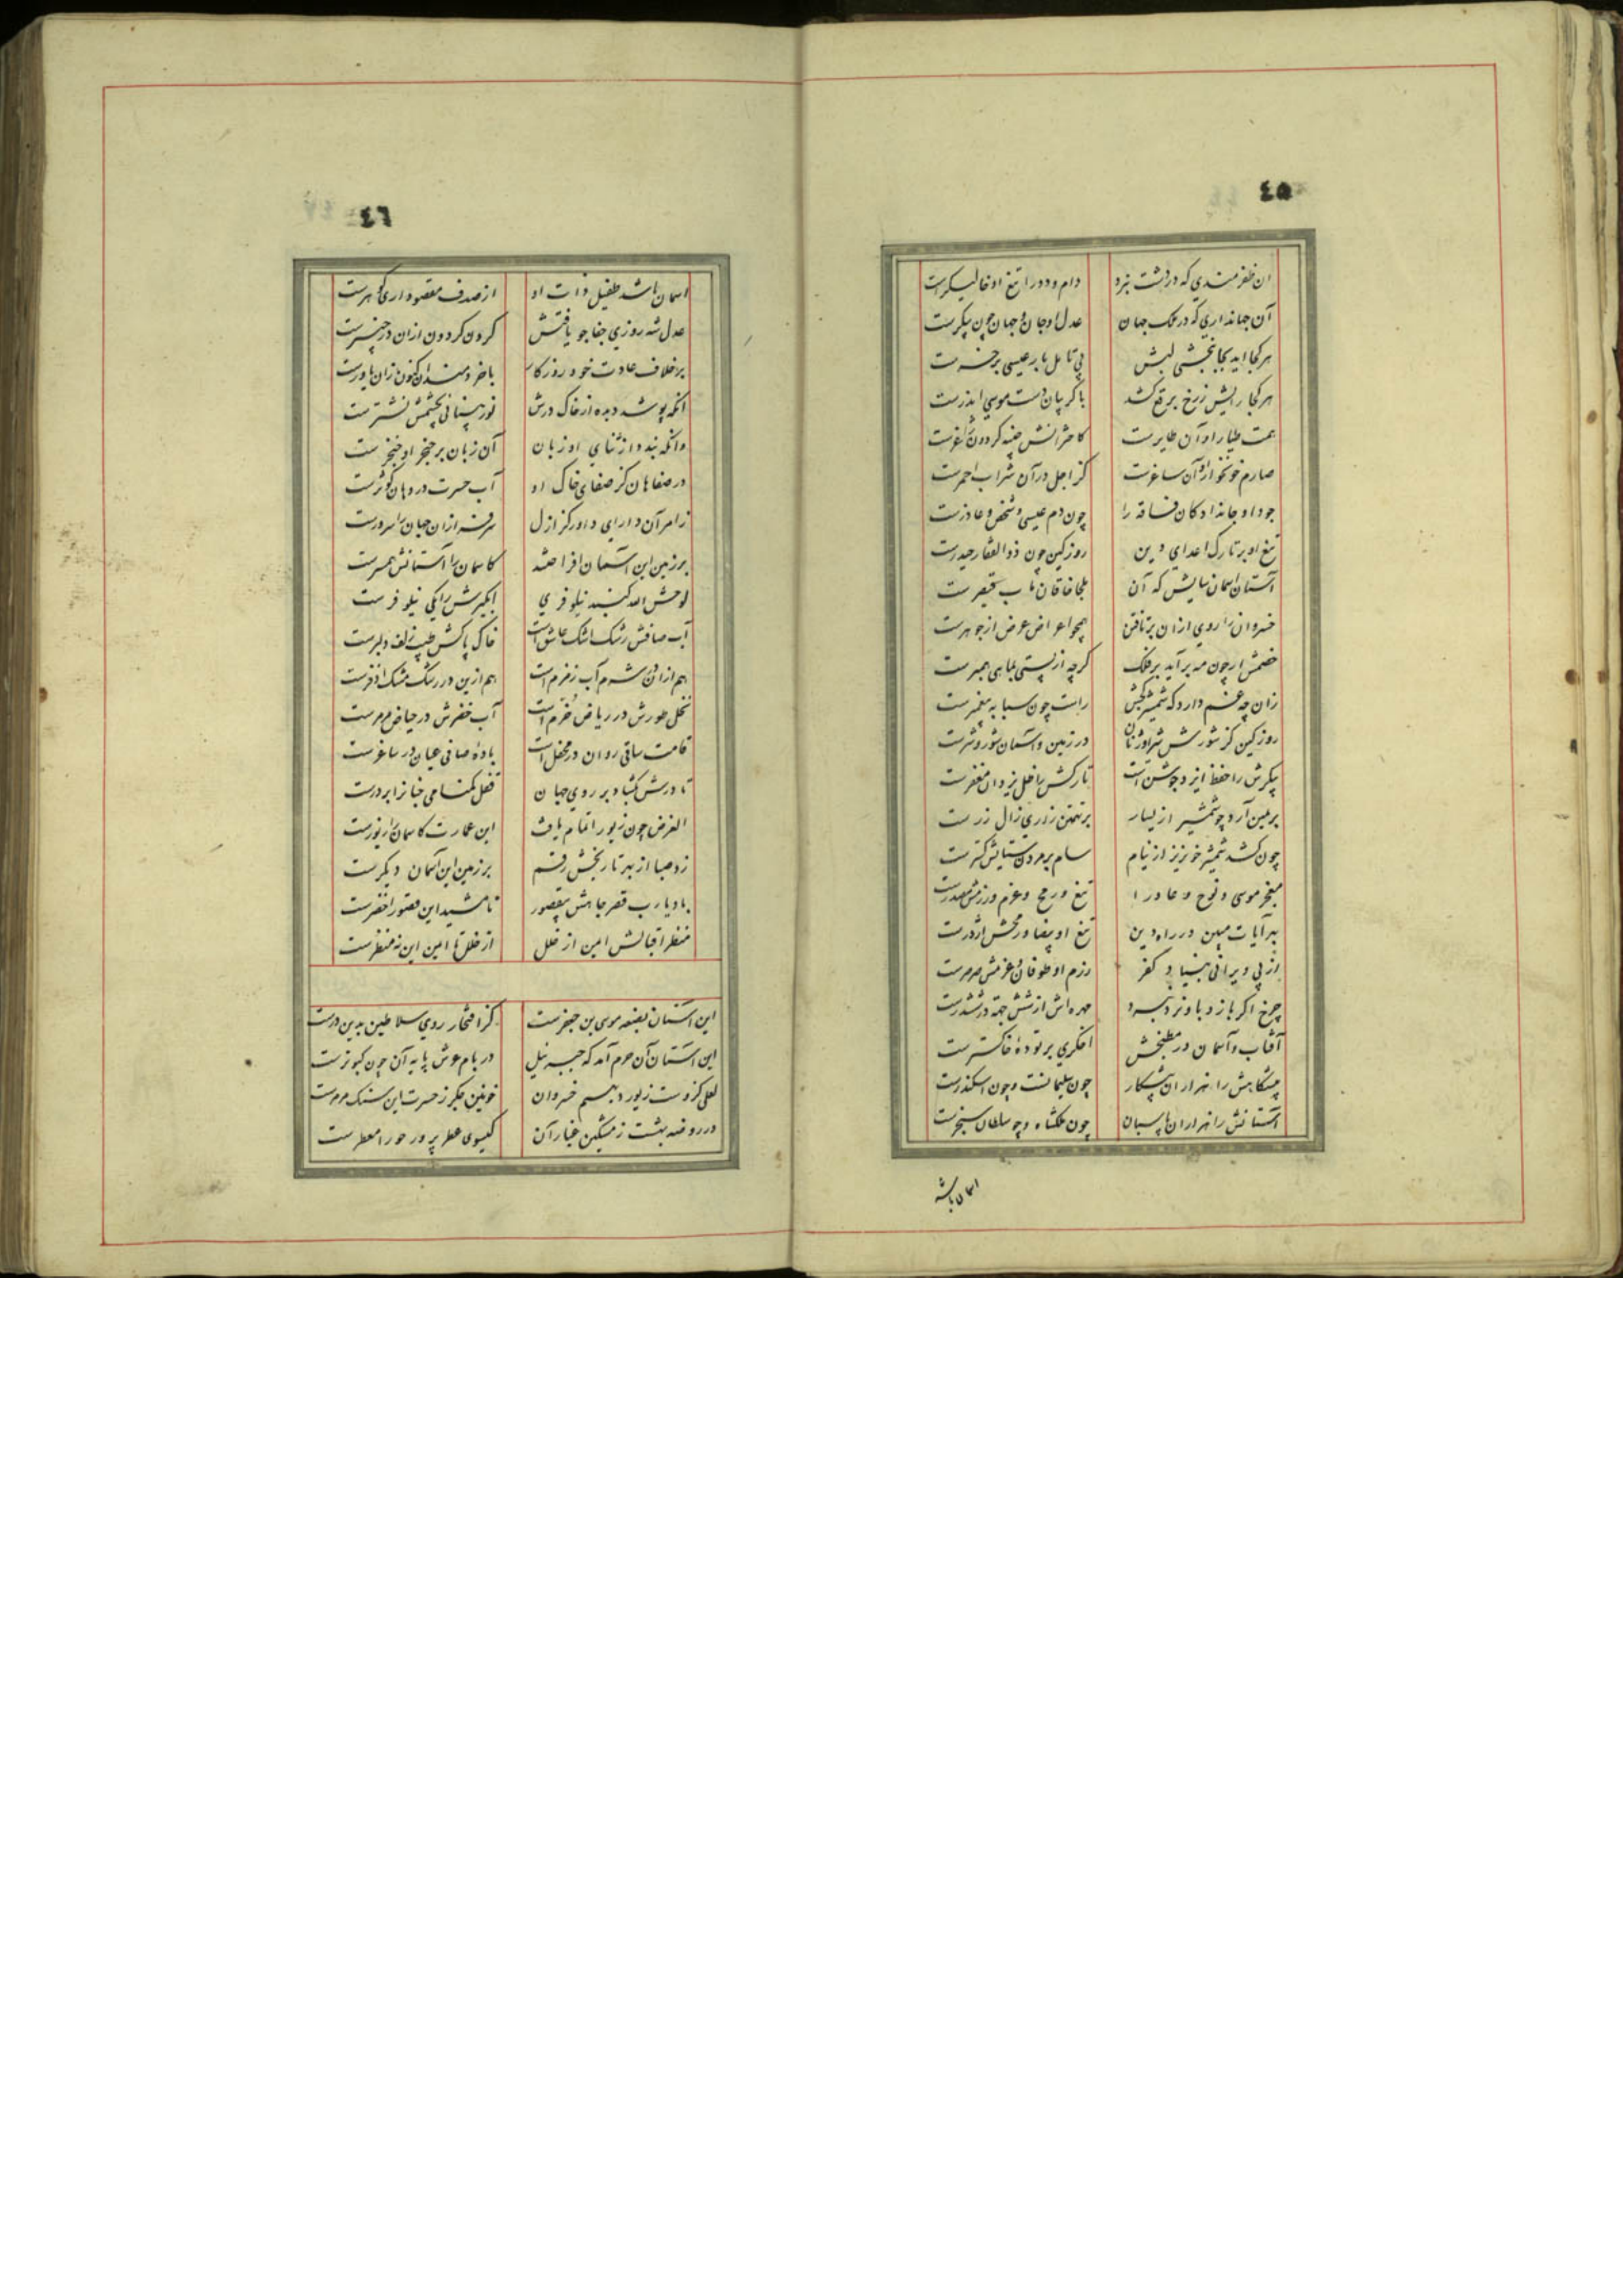 ٤٥
ان ظفرمندي که در دشت نبرد دام و دد را تیغ او خالیگرست
آن جهانداري که در ملک جهان عدل او جان و جهان چون پیکرست
هرکجا اید بجانبخشی لبش بی تامل بار عیسی بر خرست
هرکجا رایش ز رخ برقع کشد با کریبان دست موسی اندرست
همت طیار او آن طایرست کاشرانش بیضه کردون
صارم خونخوار او آن ساغرست کز اجل در آن شراب احمرست
جود او جاندادکان فاقه را چون دم عیسی و شخص عاذرست
تیغ او بر تارک اعدای دین روز کین چون ذوالفقار حیدرست
آستان اسمان سایش که آن ملجا خاقان باب قیصرست
خسروان را روي ازان برتافتن همچو اعراض عرض از جوهرست
خصمش ار چون مه برآید بر فلک کرچه از پستی بماهی همبرست
زان چه غم دارد که شمشیر کجش راست چون سبابه پیغمبرست
روز کین کز شورش شیر اوژنان در زمین و آسمان شور و شرست
پیکرش را حفظ ایزد جوشن است تارکش را ظل یزدان مغفرست
بر یمین آرد چو شمشیر از یسار بر تهمتن زاری زال زرست
چون کشد شمشیر خونریز از نیام سام بر مردن ستایش کترست
معجز موسی و نوح و عاد را تیغ و رمح و عزم و رزمش مصدرست
بهر آیات مبین در راه دین تیغ او بیضا و رمحش اژدرست
از پی ویرانی بنیاد کفر رزم او طوفان و عزمش صرصرست
چرخ اکر بازد باو نرد نبرد مهره اش از شش جهة در ششدرست
آفتاب و آسمان در مطبخش اخکري بر تودهٔ خاکسترست
پیشکاهش را هزاران پیشکار چون سلیمانست و چون اسکندرست
آستانش را هزاران پاسبان چون ملکشاه و چو سلطان سنجرست
اسمان باشد
٤٦
اسمان باشد طفیل ذات او از صدف مقصود اري کوهرست
عدل شه روزي جفاجو یافتش کردن کردون ازان در چنبرست
برخلاف عادت خود روزکار باخردمندان کنون زان یاورست
انکه پوشد دیده از خاک درش نور بینائی بچشمش نشترست
وانکه بندد از ثناي او زبان آن زبان بر حنجر او خنجرست
در صفاهان کز صفای خاک او آب حسرت در دهان کوثرست
ز امر آن داراي داور کز ازل سرفرازان جهان را سرورست
بر زمین این آسمان افراختند کاسمان را آستانش همسرست
لوحش الله کنبد نیلوفري آبکیرش را یکی نیلوفرست
آب صافش رشک اشک عاشق است خاک پاکش طیب زلف دلبرست
هم ازان در شرم آب زمزم است هم ازین در رشک مشک اذفرست
نخل طورش در ریاض خرّم است آب خضرش در حیاض مرمرست
قامت ساقی روان در محفل است بادهٔ صافی عیان در ساغرست
تا درش بکشاد بر روي جهان قفل کمنامی جنان را بر درست
الغرض چون زیور اتمام یافت این عمارت کاسمان را زیورست
زد صبا از بهر تاریخش رقم بر زمین این آسمان دیکرست
باد یا رب قصر جاهش بیقصور تا مشید این قصور اخضرست
منظر اقبالش امین از خلل از خلل تا امین این نه منظرست
این آستان بضعه موسی بن جعفرست کز افتخار روي سلاطین بدین درست
این آستان آن حرم آمد که جبرئیل در بام عرش پایه آن چون کبوترست
لعلی کزوست زیور دیهیم خسروان خونین جکر ز حسرت این سنک مرمرست
در روضه بهشت ز مشکین غبار آن کیسوی عطرپرور حورا معطرست